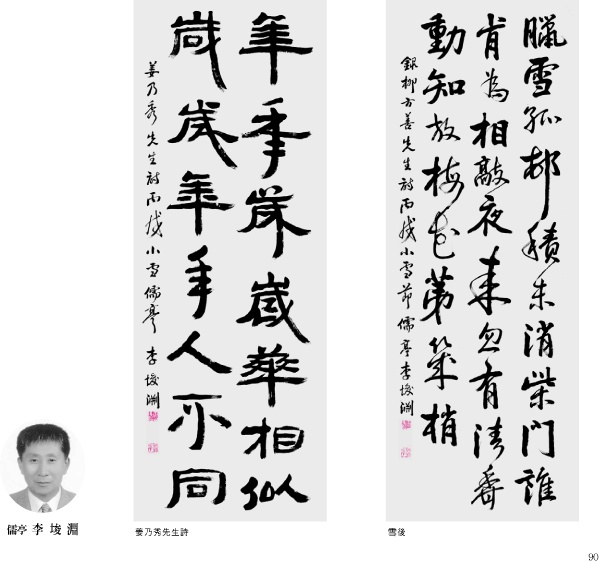 臘雪孤邨積未消柴門誰
肯為相敲夜來忽有清香
動知放梅花第幾梢
銀柳方善先生詩丙戌小雪節儒亭李埈淵
年年歲歲華相似
歲歲年年人不同
姜乃秀先生詩丙戌小雪儒亭李埈淵
儒亭 李 埈 淵
姜乃秀先生詩
雪後
90